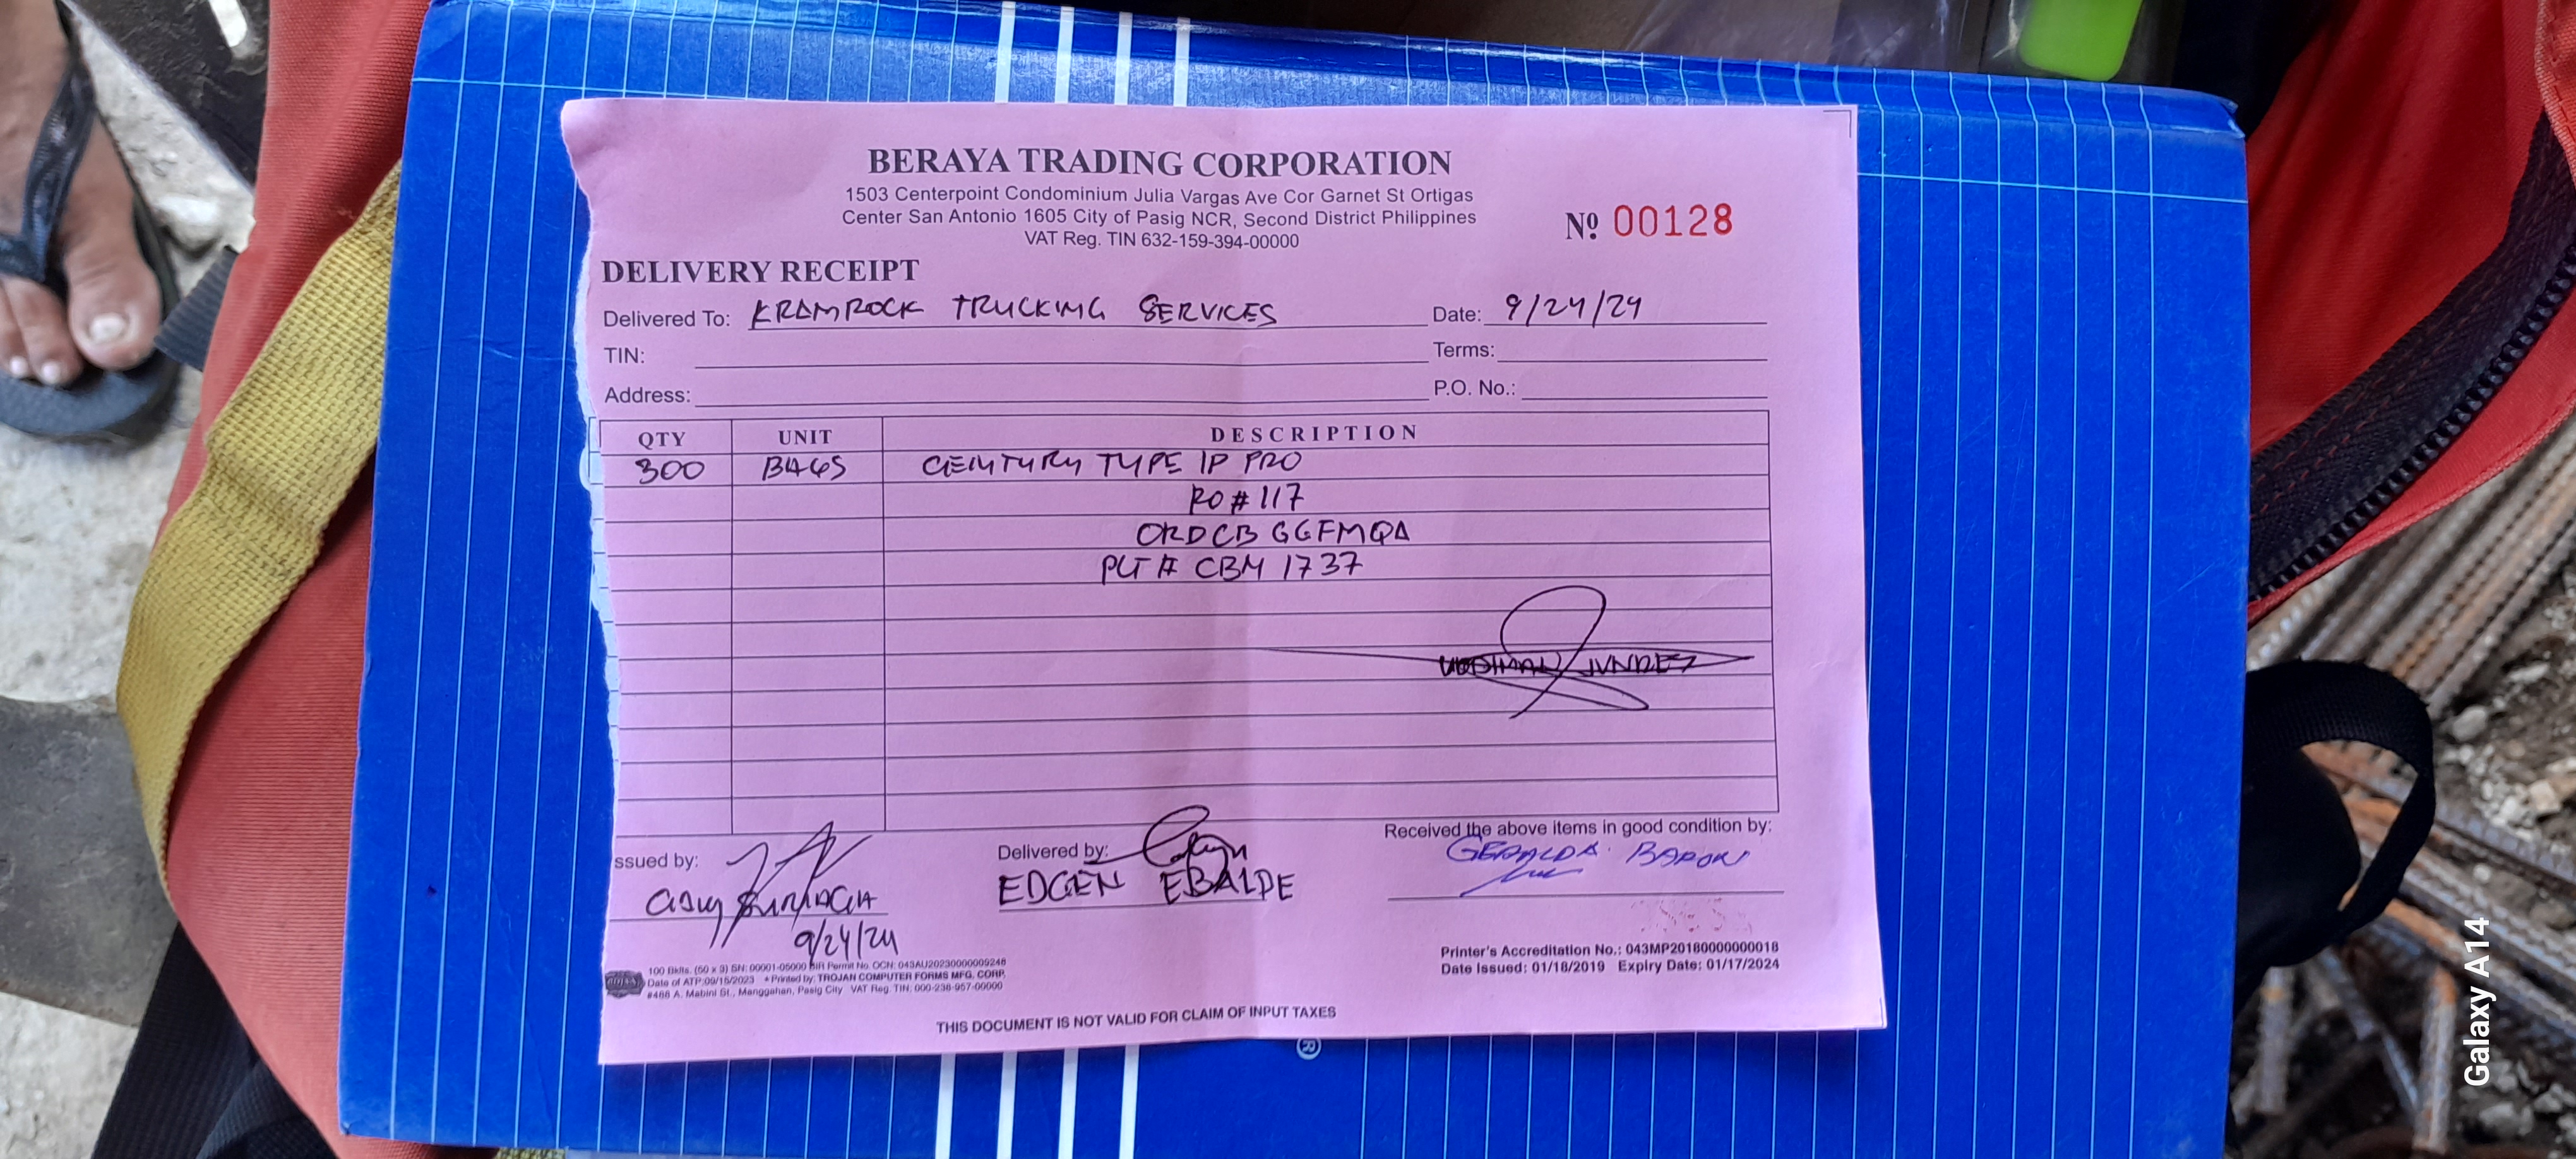 BERAYA TRADING CORPORATION
1503 Centerpoint Condominium Julia Vargas Ave Cor Garnet St Ortigas
Center San Antonio 1605 City of Pasig NCR, Second District Philippines
VAT Reg. TIN 632-159-394-00000
Nº 00128
DELIVERY RECEIPT
Delivered To: KRAMROCK TRUCKING SERVICES Date: 9/24/24
TIN: Terms:
Address: P.O. No.:
QTY UNIT DESCRIPTION
300 BAGS CENTURY TYPE 1P PRO
PO # 117
ORDCB GGFMQA
PLT # CBM 1737
Received the above items in good condition by:
ssued by: Delivered by:
GERALDA BARON
EDGEN EBALDE
9/24/24
100 Bklts. (50 x 3) SN: 00001-05000 BIR Permit No. OCN: 043AU20230000009248
Date of ATP:09/15/2023 • Printed by: TROJAN COMPUTER FORMS MFG. CORP.
#488 A. Mabini St., Manggahan, Pasig City VAT Reg. TIN: 000-238-957-00000
Printer's Accreditation No.: 043MP20180000000018
Date Issued: 01/18/2019 Expiry Date: 01/17/2024
THIS DOCUMENT IS NOT VALID FOR CLAIM OF INPUT TAXES
®
Galaxy A14